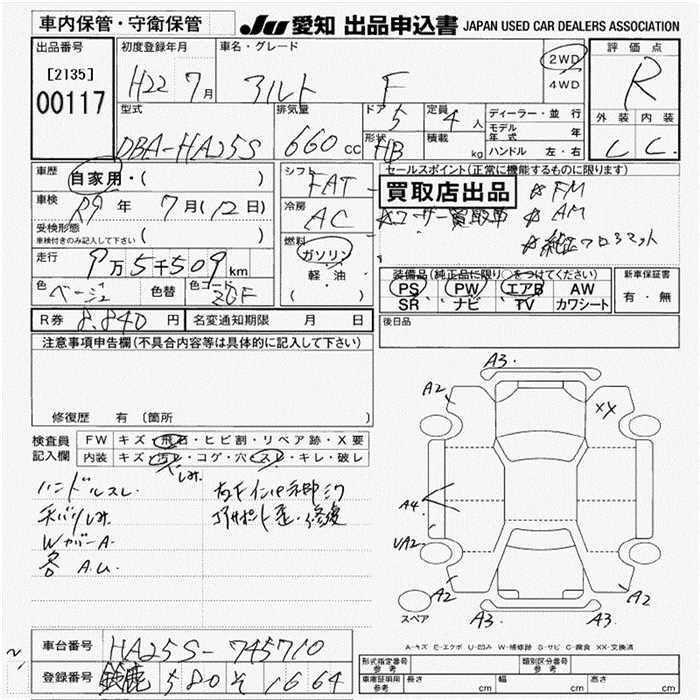 車内保管・守衛保管 JU 愛知 出品申込書 JAPAN USED CAR DEALERS ASSOCIATION
出品番号 初度登録年月 車名・グレード 評価点
[2135] H22 7月 アルト F 2WD 4WD R
00117 型式 排気量 ドア 定員 ディーラー・並行 外装 内装
DBA-HA25S 660cc 5 4人 モデル年式 年 C C.
形状 HB 積載 kg ハンドル 左・右
車歴 自家用・( ) シフト FAT セールスポイント(正常に機能するものに限ります)
車検 R9年 7月(12日) 冷房 AC 買取店出品 ☆FM
☆ユーザー買取車 ☆AM
受検形態 ( )
車検付きのみ記入して下さい
燃料 ガソリン 軽油 ( )
☆純正フロアマット
走行 9万5千509km
装備品(純正品に限り○をつけてください) 新車保証書
色 ベージュ 色替 色コード ZGF
PS PW エアB AW 有・無
SR ナビ TV カワシート
R券 8,840円 名変通知期限 月 日 後日品
注意事項申告欄(不具合内容等は具体的に記入して下さい)
修復歴 有 〔箇所
検査員記入欄 FW キズ・飛石・ヒビ割・リペア跡・X要
内装 キズ・汚レ・コゲ・穴・スレ・キレ・破レ
しみ.
ハンドルスレ.
天バリしみ.
Wカバー A.
各 A.U.
コアサポート 歪・修復
A3.
A2
XX
A4
UA2
A2
A2
A3.
A3.
スペア
A-キズ E-エクボ U-凹み W-補修跡 S-サビ C-腐食 XX-交換済
車台番号 HA25S-745710
登録番号 鈴鹿 580 そ 1664
形式指定番号 参考 類別区分番号 参考
車庫証明用 参考 長さ cm 幅 cm 高さ cm